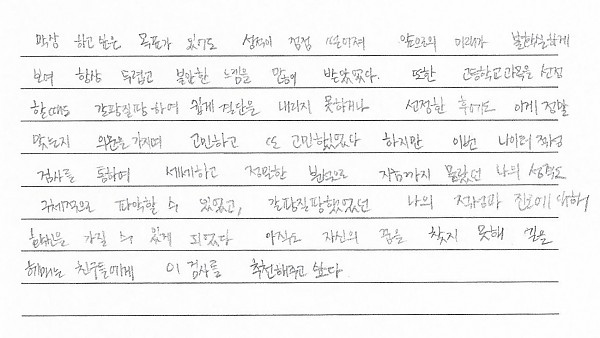 막상 하고싶은 목표가 있어도 성적이 점점 떨어져 앞으로의 미래가 불확실하게
보여 항상 두렵고 불안한 느낌을 많이 받았었다. 또한 고등학교 과목을 선정
할때도 갈팡질팡하여 쉽게 결단을 내리지 못하거나 선정한 후에도 이게 정말
맞는지 의문을 가지며 고민하고 또 고민했었다 하지만 이번 나이터 적성
검사를 통하여 세세하고 정밀한 분석으로 지금까지 몰랐던 나의 성향도
구체적으로 파악할 수 있었고, 갈팡질팡했었던 나의 적성과 진로에 대해
확신을 가질 수 있게 되었다 아직도 자신의 꿈을 찾지 못해 길을
헤매는 친구들에게 이 검사를 추천해주고 싶다